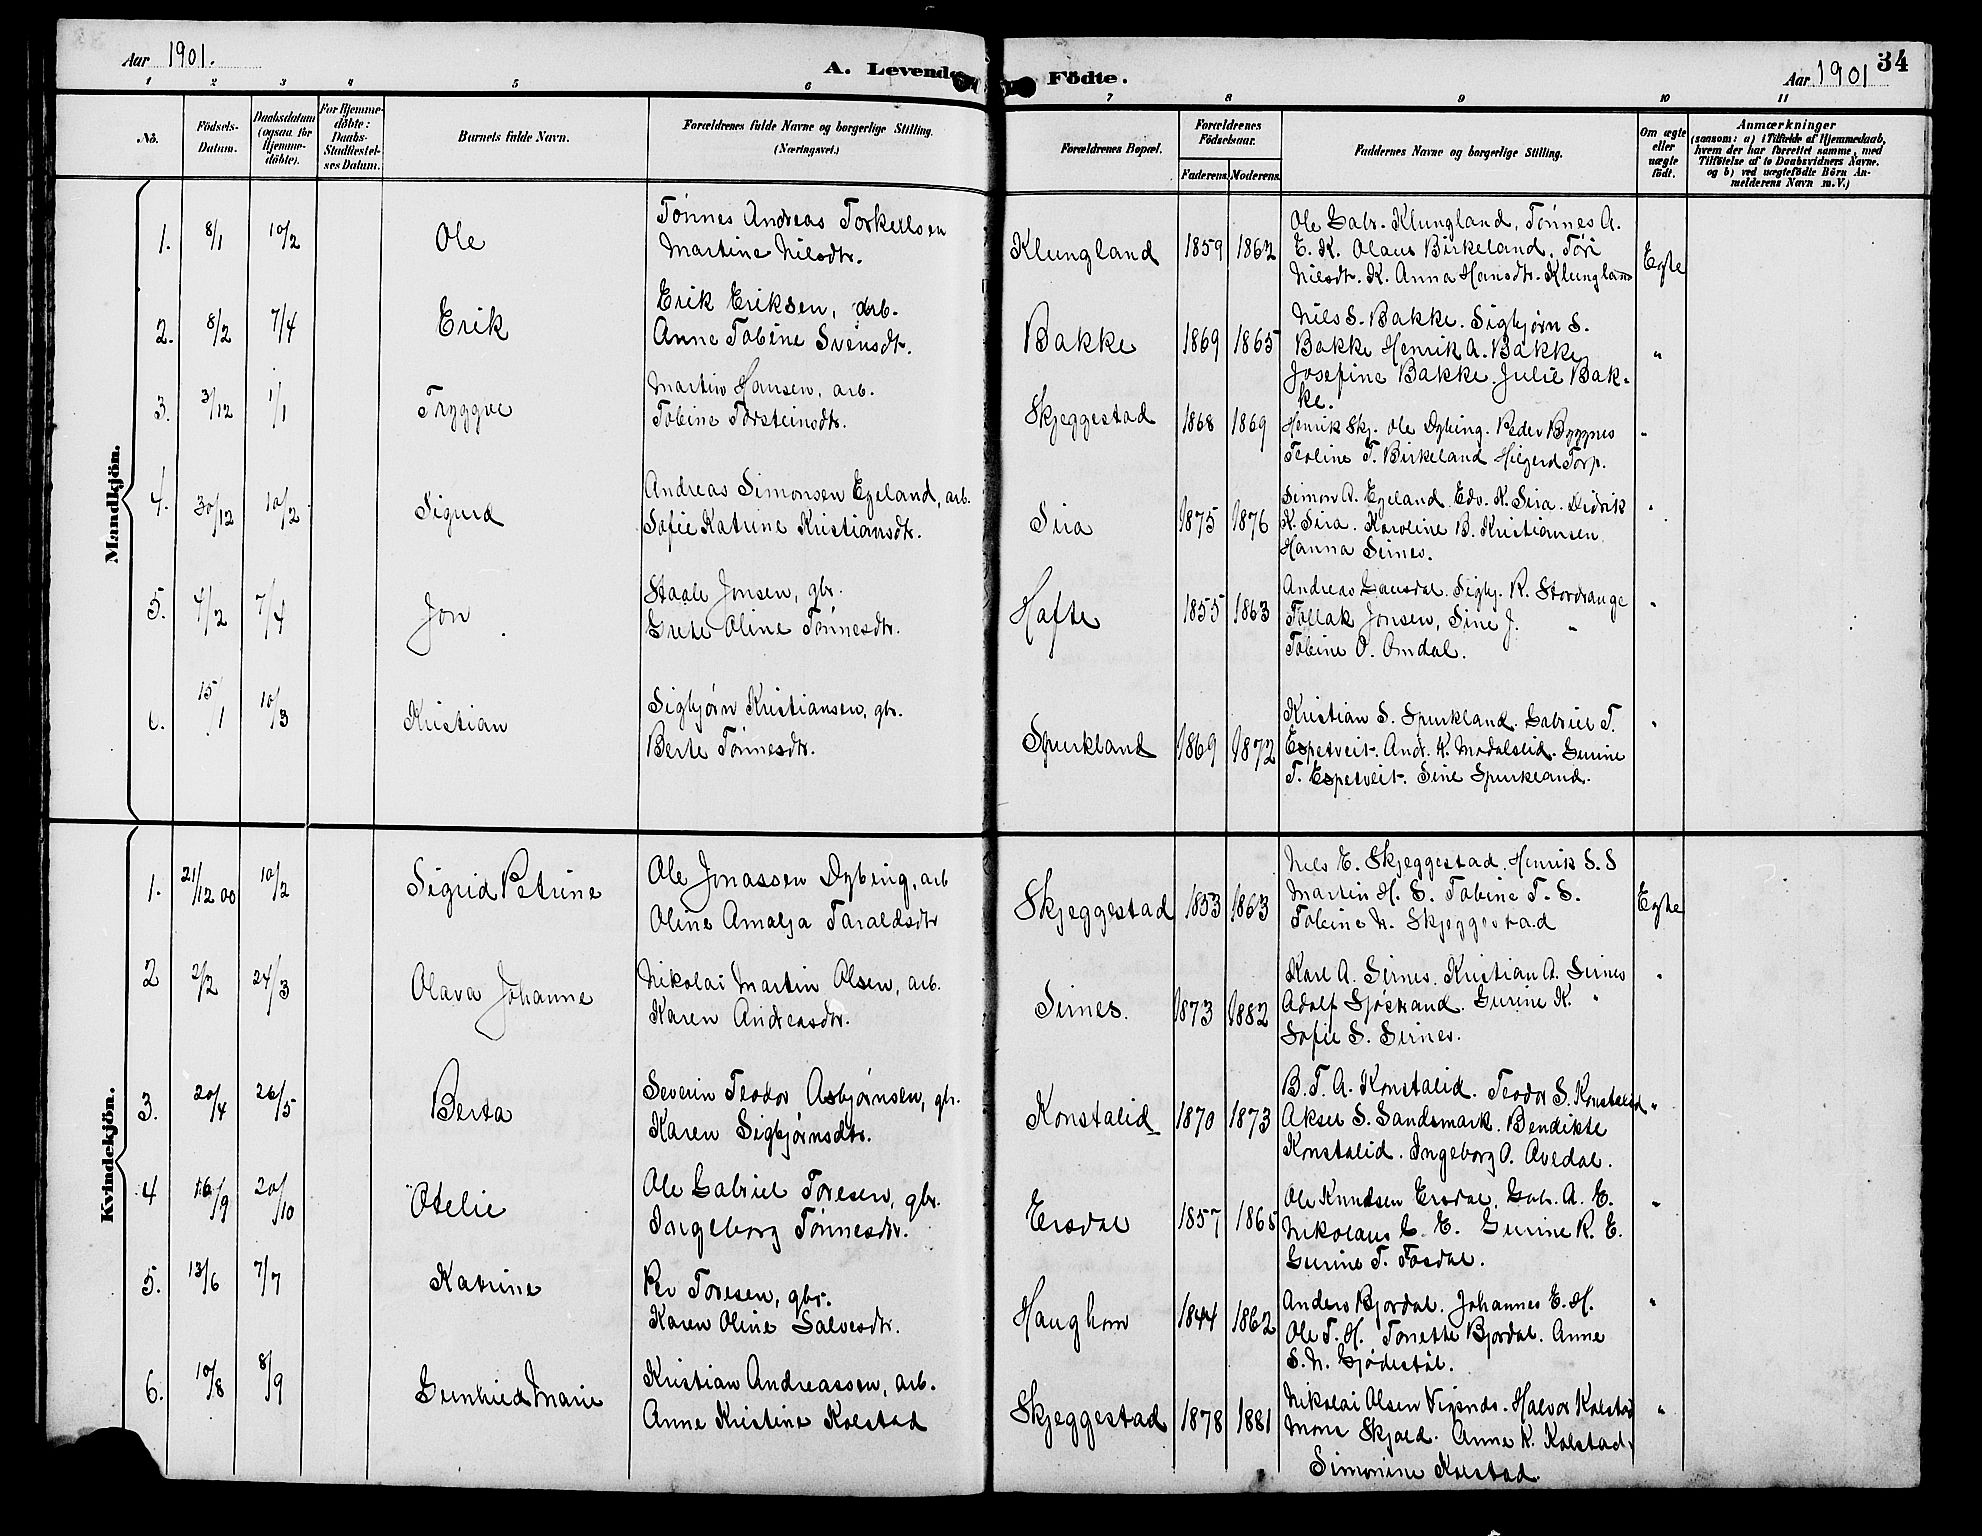 Aar 1901.
A. Levende Födte.
Aar 1901
34
1 2 3 4 5 6 7 8 9 10 11
No.
Födsels-
Datum.
Daabsdatum
(ogsaa for
Hjemme-
döbte).
For Hjemme-
döbte:
Daabs-
Stadfæstel-
ses Datum.
Barnets fulde Navn.
Forældrenes fulde Navne og borgerlige Stilling.
(Næringsvei.)
Forældrenes Bopæl.
Forældrenes
Födselsaar.
Faderens. Moderens.
Faddernes Navne og borgerlige Stilling.
Om ægte
eller
uægte
født.
Anmærkninger
(saasom: a) i Tilfælde af Hjemmedaab,
hvem der har forrettet samme, med
Tilföielse af to Daabsvidners Navne.
og b) ved uægtefödte Börn An-
melderens Navn m.V.)
Mandkjön.
1. 8/1 10/2 Ole
Tönnes Andreas Torkellsen
Martine Nilsdtr.
Klungland 1859 1862
Ole Gabr. Klungland, Tönnes A.
E. K. Olaus Birkeland. Töri
Nilsdt. K. Anna Hansdtr. Klungland
Egte
2. 8/2 7/4 Erik
Erik Eriksen, arb.
Anne Tobine Svensdtr.
Bakke 1869 1865
Nils S. Bakke. Sigbjörn S.
Bakke Henrik A. Bakke
Josefine Bakke. Julie Bak-
ke.
"
3. 3/12 1/1 Tryggve
Martin Hansen, arb.
Tobine Torsteinsdtr.
Skjeggestad 1868 1869
Henrik Skj. Ole Dybing. Peder Byggnes
Teoline T. Birkeland Hilgerd Torp.
"
4. 30/12 10/2 Sigurd
Andreas Simonsen Egeland, arb.
Sofie Katrine Kristiansdtr.
Sira 1875 1876
Simon A. Egeland. Edv. K. Sira. Didrik
K. Sira. Karoline B. Kristiansen.
Hanna Sirnes.
"
5. 4/2 7/4 Jon
Staale Jonsen, gbr.
Grete Oline Tönnesdtr.
Hafte 1855 1863
Andreas Gausdal. Sigbj. R. Stordrange
Tollak Jonsen, Sine J. "
Tobine O. Omdal.
"
6. 15/1 10/3 Kristian
Sigbjörn Kristiansen, gbr.
Berte Tönnesdtr.
Spurkland 1869 1872
Kristian S. Spurkland. Gabriel T.
Espetveit. Andr. K. Modalslid. Gurine
T. Espetveit. Sine Spurkeland.
"
Kvindekjön.
1. 21/12 00 10/2 Sigrid Petrine
Ole Jonassen Dybing, arb
Oline Amalja Taraldsdtr
Skjeggestad 1853 1863
Nils E. Skjeggestad. Henrik S. S
Martin H. S. Tobine T. S.
Tobine N. Skjeggestad
Egte
2 2/2 24/3 Olava Johanne
Nikolai Martin Olsen, arb.
Karen Andreasdtr.
Sirnes. 1873 1882
Karl A. Sirnes. Kristian A. Sirnes
Adolf Sjöstrand. Gurine K. "
Sofie S. Sirnes.
"
3. 20/4 26/5 Berta
Severin Teodor Asbjörnsen, gbr.
Karen Sigbjörnsdtr.
Konstalid 1870 1873
B. T. A. Konstalid. Teodor S. Konstalid
Aksel S. Sandsmark. Bendikte
Konstalid. Ingeborg O. Avedal.
"
4 16/9 20/10 Otelie
Ole Gabriel Toresen, gbr.
Ingeborg Tönnesdtr.
Ersdal 1857 1865
Ole Knudsen Ersdal. Gab. A. E.
Nikolaus G. E. Gurine R. E.
Gurine T. Fosdal.
"
5. 13/6 7/7 Katrine
Per Toresen, gbr.
Karen Oline Salvesdtr.
Haughom 1844 1862
Anders Bjordal. Johannes E. H.
Ole T. H. Tonette Bjordal. Anne
S. N. Gjödestöl.
"
6. 10/8 8/9 Gunhild Marie
Kristian Andreassen, arb.
Anne Kristine Kolstad
Skjeggestad 1878 1881
Nikolai Olsen Virsnds. Halvor Kolstad
Mons Skjold. Anne K. Kolstad.
Simonine Kolstad.
"